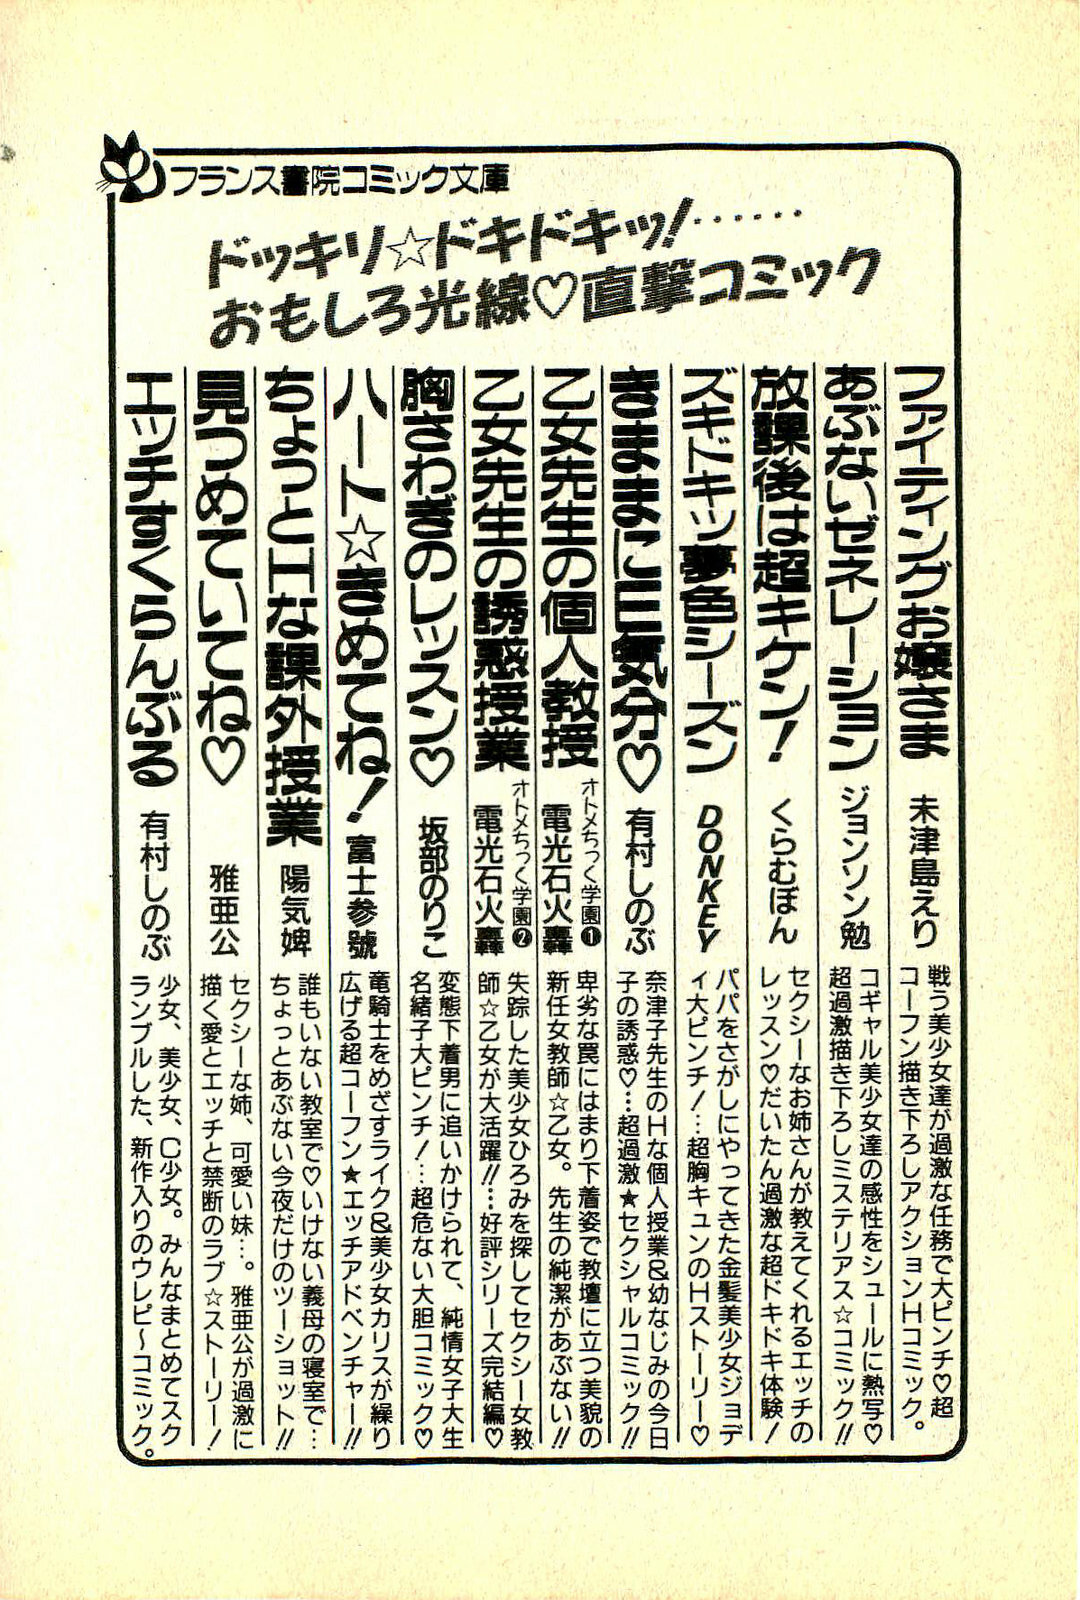 フランス書院コミック文庫
ドッキリ☆ドキドキッ!……
おもしろ光線♡直撃コミック
ファイティングお嬢さま
未津島えり
戦う美少女達が過激な任務で大ピンチ♡超
コーフン描き下ろしアクションHコミック。
あぶないゼネレーション
ジョンソン勉
コギャル美少女達の感性をシュールに熱写♡
超過激描き下ろしミステリアス☆コミック!!
放課後は超キケン!
くらむぼん
セクシーなお姉さんが教えてくれるエッチの
レッスン♡だいたん過激な超ドキドキ体験!
ズキドキッ夢色シーズン
DONKEY
パパをさがしにやってきた金髪美少女ジョデ
ィ大ピンチ!…超胸キュンのHストーリー♡
きままにH気分♡
有村しのぶ
奈津子先生のHな個人授業&幼なじみの今日
子の誘惑♡…超過激★セクシャルコミック!!
乙女先生の個人教授
オトメちっく学園❶
電光石火轟
卑劣な罠にはまり下着姿で教壇に立つ美貌の
新任女教師☆乙女。先生の純潔があぶない!!
乙女先生の誘惑授業
オトメちっく学園❷
電光石火轟
失踪した美少女ひろみを探してセクシー女教
師☆乙女が大活躍!!…好評シリーズ完結編♡
胸さわぎのレッスン♡
坂部のりこ
変態下着男に追いかけられて、純情女子大生
名緒子大ピンチ!…超危ない大胆コミック♡
ハート☆きめてね!
富士参號
竜騎士をめざすライク&美少女カリスが繰り
広げる超コーフン★エッチアドベンチャー!!
ちょっとHな課外授業
陽気婢
誰もいない教室で♡いけない義母の寝室で…
ちょっとあぶない今夜だけのツーショット!!
見つめていてね♡
雅亜公
セクシーな姉、可愛い妹…。雅亜公が過激に
描く愛とエッチと禁断のラブ☆ストーリー!
エッチすくらんぶる
有村しのぶ
少女、美少女、C少女。みんなまとめてスク
ランブルした、新作入りのウレピ〜コミック。